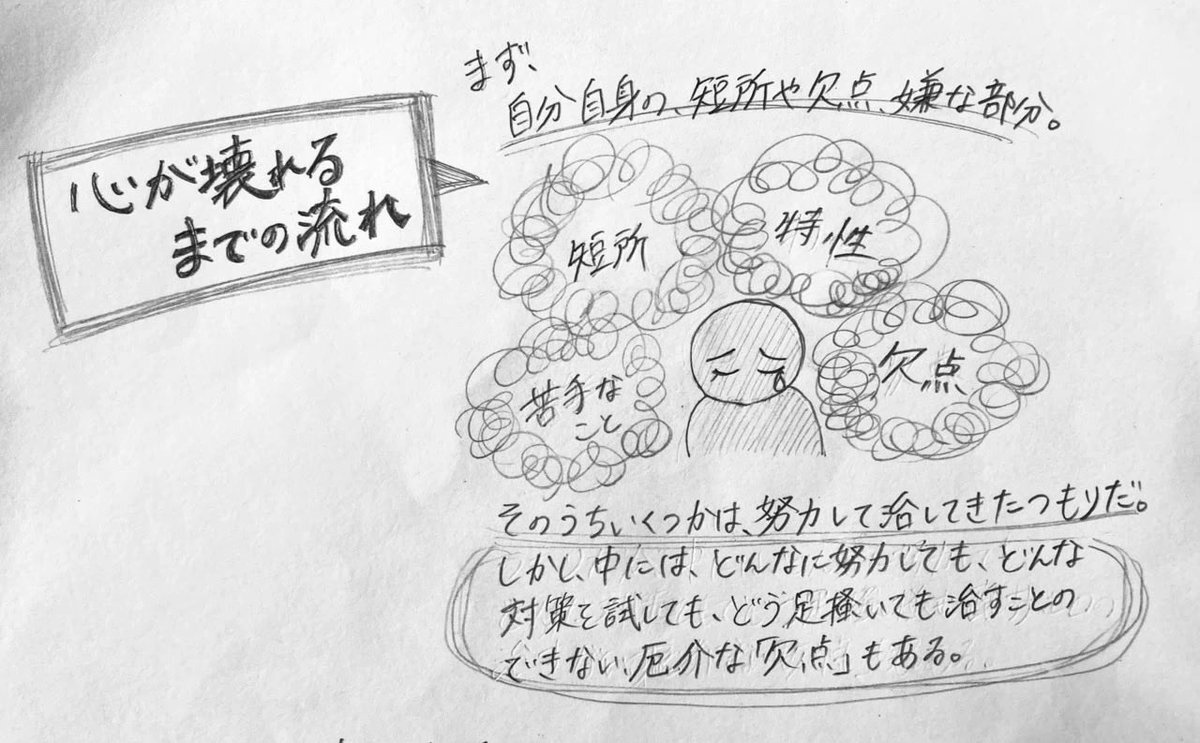 心が壊れる
までの流れ
まず、
自分自身の、短所や欠点、嫌な部分。
短所
特性
苦手な
こと
欠点
そのうちいくつかは、努力して治してきたつもりだ。
しかし、中には、どんなに努力しても、どんな
対策を試しても、どう足掻いても治すことの
できない、厄介な「欠点」もある。